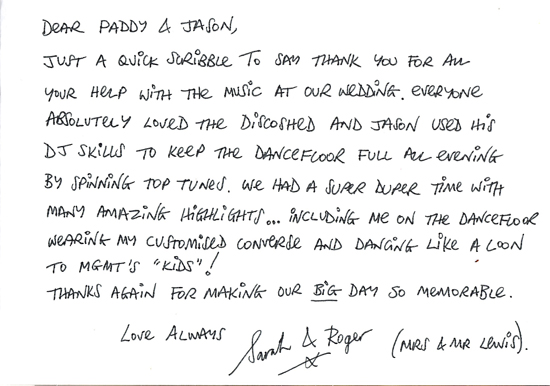 DEAR PADDY & JASON,
JUST A QUICK SCRIBBLE TO SAY THANK YOU FOR ALL
YOUR HELP WITH THE MUSIC AT OUR WEDDING. EVERYONE
ABSOLUTELY LOVED THE DISCOSHED AND JASON USED HIS
DJ SKILLS TO KEEP THE DANCEFLOOR FULL ALL EVENING
BY SPINNING TOP TUNES. WE HAD A SUPER DUPER TIME WITH
MANY AMAZING HIGHLIGHTS... INCLUDING ME ON THE DANCEFLOOR
WEARING MY CUSTOMISED CONVERSE AND DANCING LIKE A LOON
TO MGMT'S "KIDS"!
THANKS AGAIN FOR MAKING OUR BIG DAY SO MEMORABLE.
LOVE ALWAYS Sarah & Roger (MRS & MR LEWIS).
X